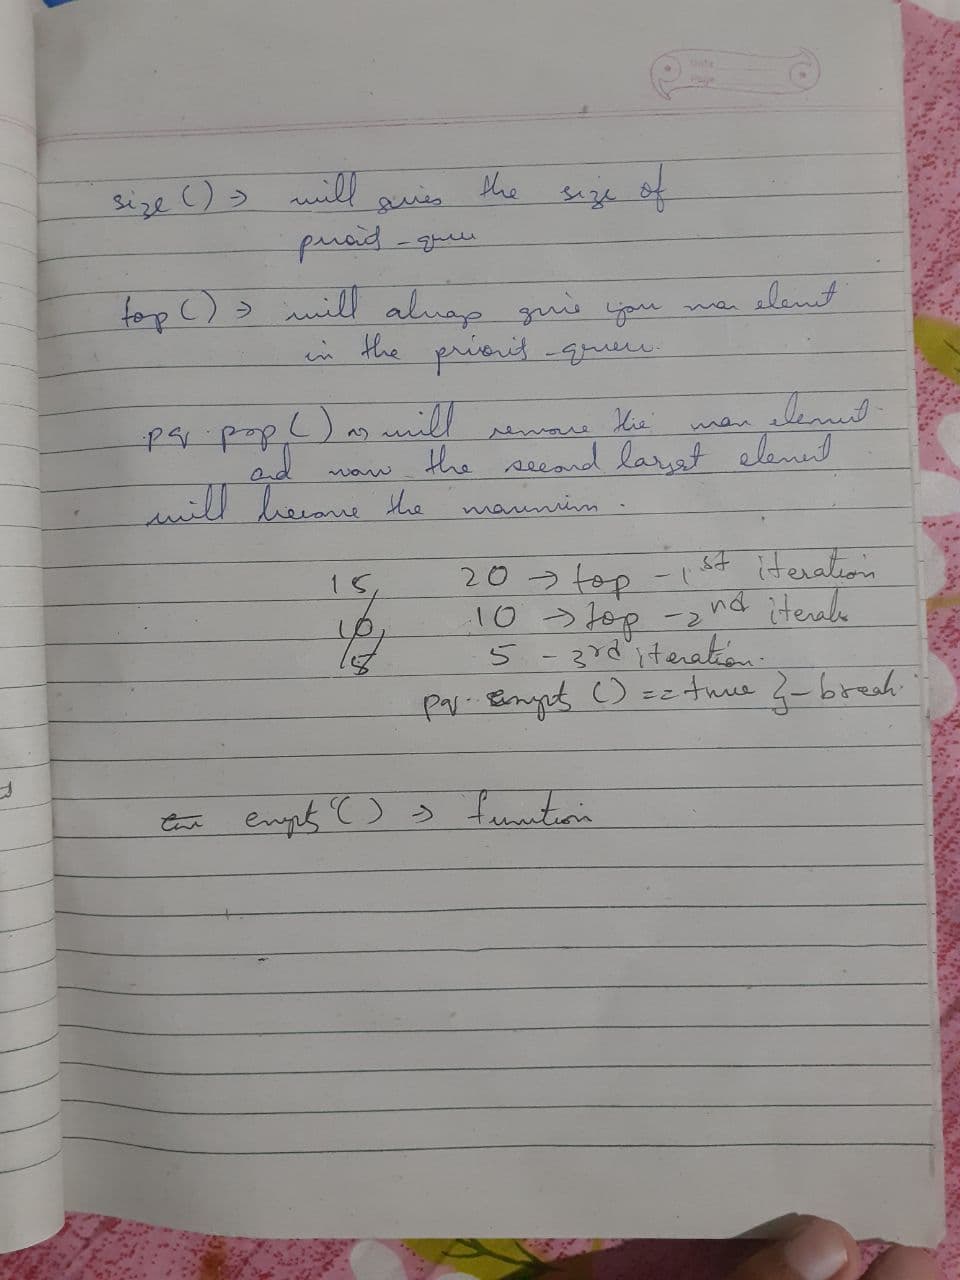 Date
Page
size () → will gives the size of
priorit - queue
top () → will always give you max element
in the priorit - queue.
pq . pop () → will remove the max element
and now the second largest element
will become the maximum .
15, 20 → top - 1st iteration
10, 10 → top - 2nd iterati
5 - 3rd iteration.
pq. empty () == true } - break.
empty () → function